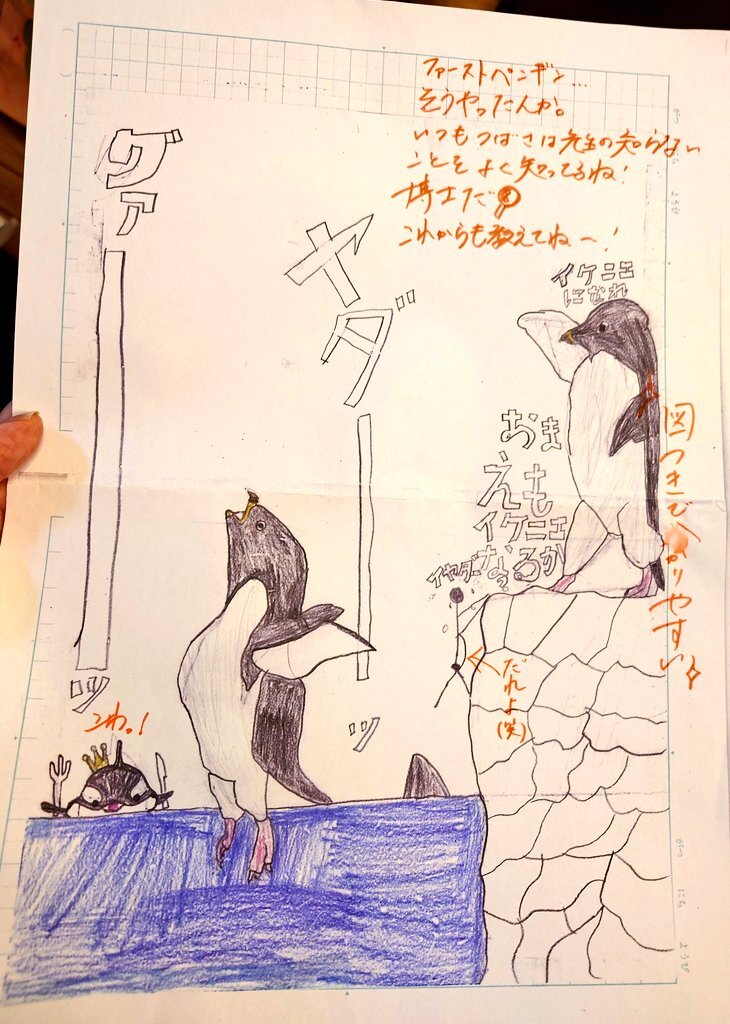 ファーストペンギン...
そうやったんか。
いつもつばさは先生の知らない
ことをよく知ってるね!
博士だ
これからも教えてねー!
イケニエ
になれ
ヤダーーッ
ゲァーーッ
おまえも
イケニエ
なるか
イヤダーなぁ
図つきで分かりやすい
だれよ(笑)
こわ。!
がつ
にち
ようび